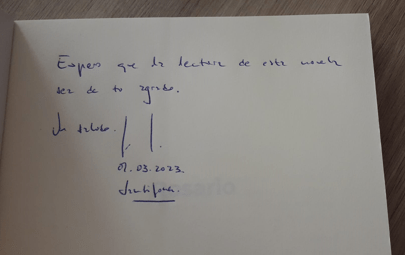 Espero que la lectura de esta novela
sea de tu agrado.
Un saludo.
01.03.2023.